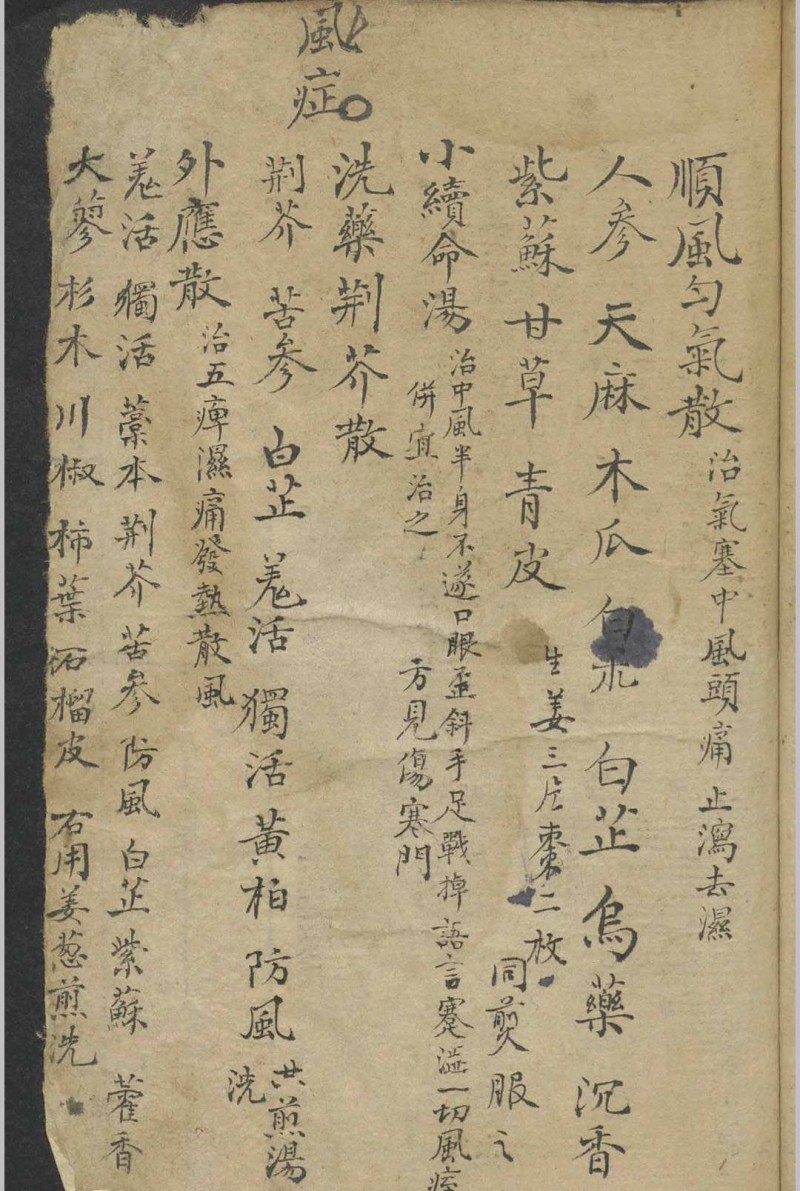 風症
順風勻氣散 治氣塞中風頭痛止瀉去濕
人參 天麻 木瓜 白朮 白芷 烏藥 沉香
紫蘇 甘草 青皮 生姜三片棗二枚 同煎服之
小續命湯 治中風半身不遂口眼歪斜手足戰掉語言蹇澁一切風症
併宜治之 方見傷寒門
洗藥荆芥散
荆芥 苦參 白芷 羗活 獨活 黃柏 防風 共煎湯洗
外應散 治五痺濕痛發熱散風
羗活 獨活 藁本 荆芥 苦參 防風 白芷 紫蘇 藿香
大蓼 杉木 川椒 柿葉 石榴皮 右用姜葱煎洗